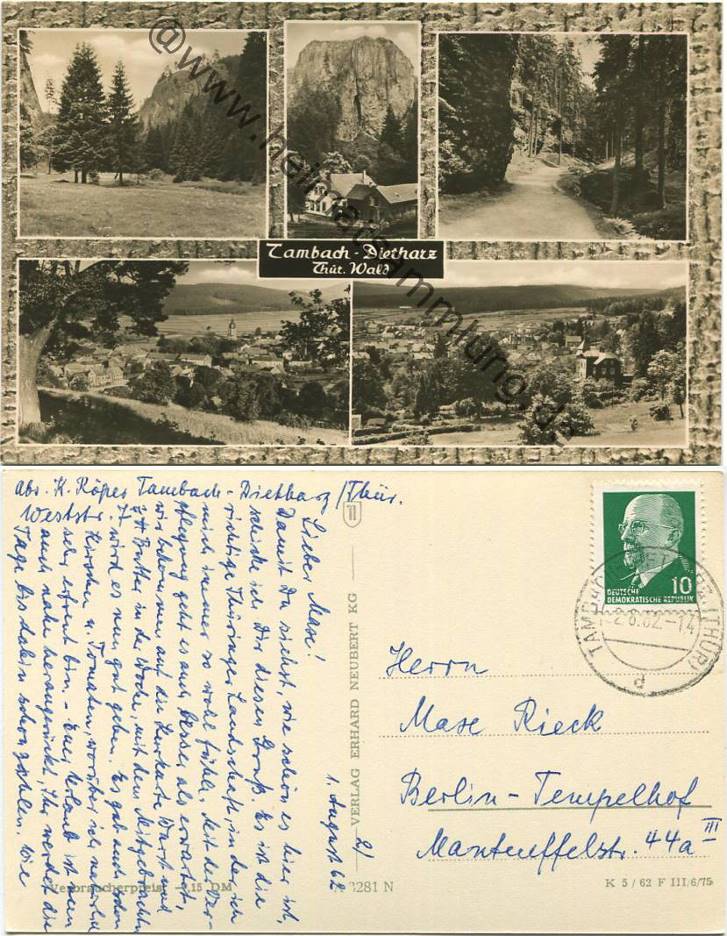 @www.heimatsammlung.de
Tambach-Dietharz
Thür. Wald
abs. K. Röper Tambach-Dietharz/Thür.
Weststr. 17
1. August 62
Lieber Maxe!
Damit Du siehst, wie schön es hier ist,
schicke ich Dir diesen Gruß. Es ist die
richtige Thüringer Landschaft, in der ich
mich immer so wohl fühle. Mit der Ver-
pflegung geht es auch besser, als erwartet,
wir bekommen auf die Kurkarte Wurst und
Butter in der Woche, mit dem Mitgebrachten
wird es nun gut gehen. Es gab auch schon
Kirschen u. Tomaten, worüber ich natürlich
sehr erfreut bin. - Euer Urlaub ist nun
auch nahe herangerückt, Ihr werdet die
Tage bis dahin schon zählen. Wie
2)
VERLAG ERHARD NEUBERT KG
DEUTSCHE
DEMOKRATISCHE REPUBLIK
10
TAMBACH-DIETHARZ (THÜR)
-2.8.62-14
d
Herrn
Maxe Rieck
Berlin-Tempelhof
Manteuffelstr. 44a III
Verbraucherpreis -,15 DM
3281 N
K 5/62 F III/6/75